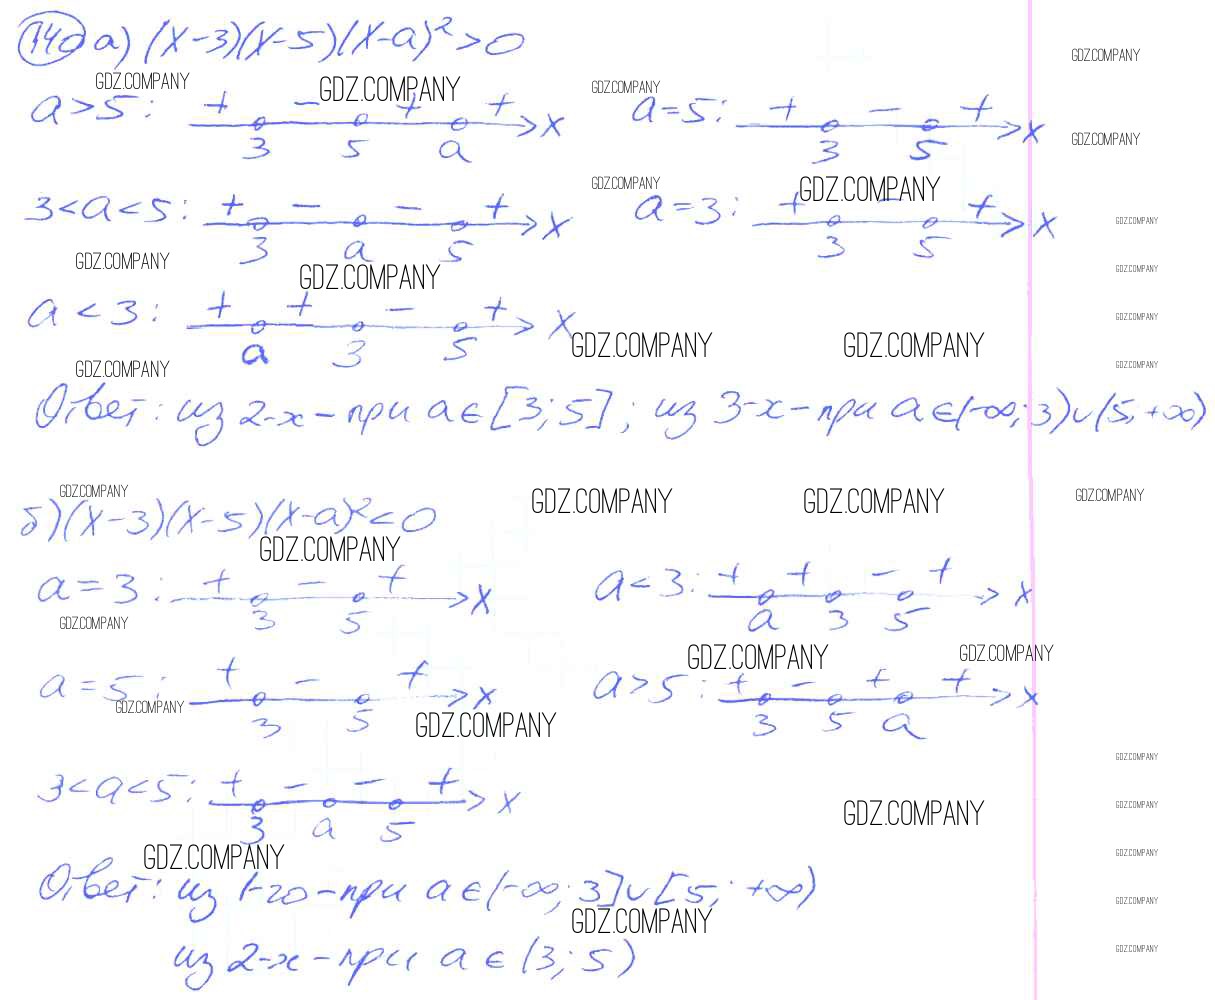 140 а) (x-3)(x-5)(x-a)²>0
GDZ.COMPANY GDZ.COMPANY GDZ.COMPANY GDZ.COMPANY
a>5: + - + + x a=5: + - + x
3 5 a 3 5 GDZ.COMPANY
GDZ.COMPANY GDZ.COMPANY
3<a<5: + - - + x a=3: + - + x GDZ.COMPANY
3 a 5 3 5
GDZ.COMPANY GDZ.COMPANY GDZ.COMPANY
a<3: + + - + x GDZ.COMPANY
a 3 5 GDZ.COMPANY GDZ.COMPANY
GDZ.COMPANY GDZ.COMPANY
Ответ: из 2-х - при a∈[3;5]; из 3-х - при a∈(-∞;3)∪(5;+∞)
GDZ.COMPANY GDZ.COMPANY GDZ.COMPANY GDZ.COMPANY
б) (x-3)(x-5)(x-a)²<0
GDZ.COMPANY
a=3: + - + x a<3: + + - + x
3 5 a 3 5
GDZ.COMPANY
GDZ.COMPANY GDZ.COMPANY
a=5: + - + x a>5: + - + + x
3 5 3 5 a
GDZ.COMPANY GDZ.COMPANY
GDZ.COMPANY
3<a<5: + - - + x
3 a 5 GDZ.COMPANY GDZ.COMPANY
GDZ.COMPANY GDZ.COMPANY
Ответ: из 1-го - при a∈(-∞;3]∪[5;+∞)
GDZ.COMPANY GDZ.COMPANY
из 2-х - при a∈(3;5)
GDZ.COMPANY